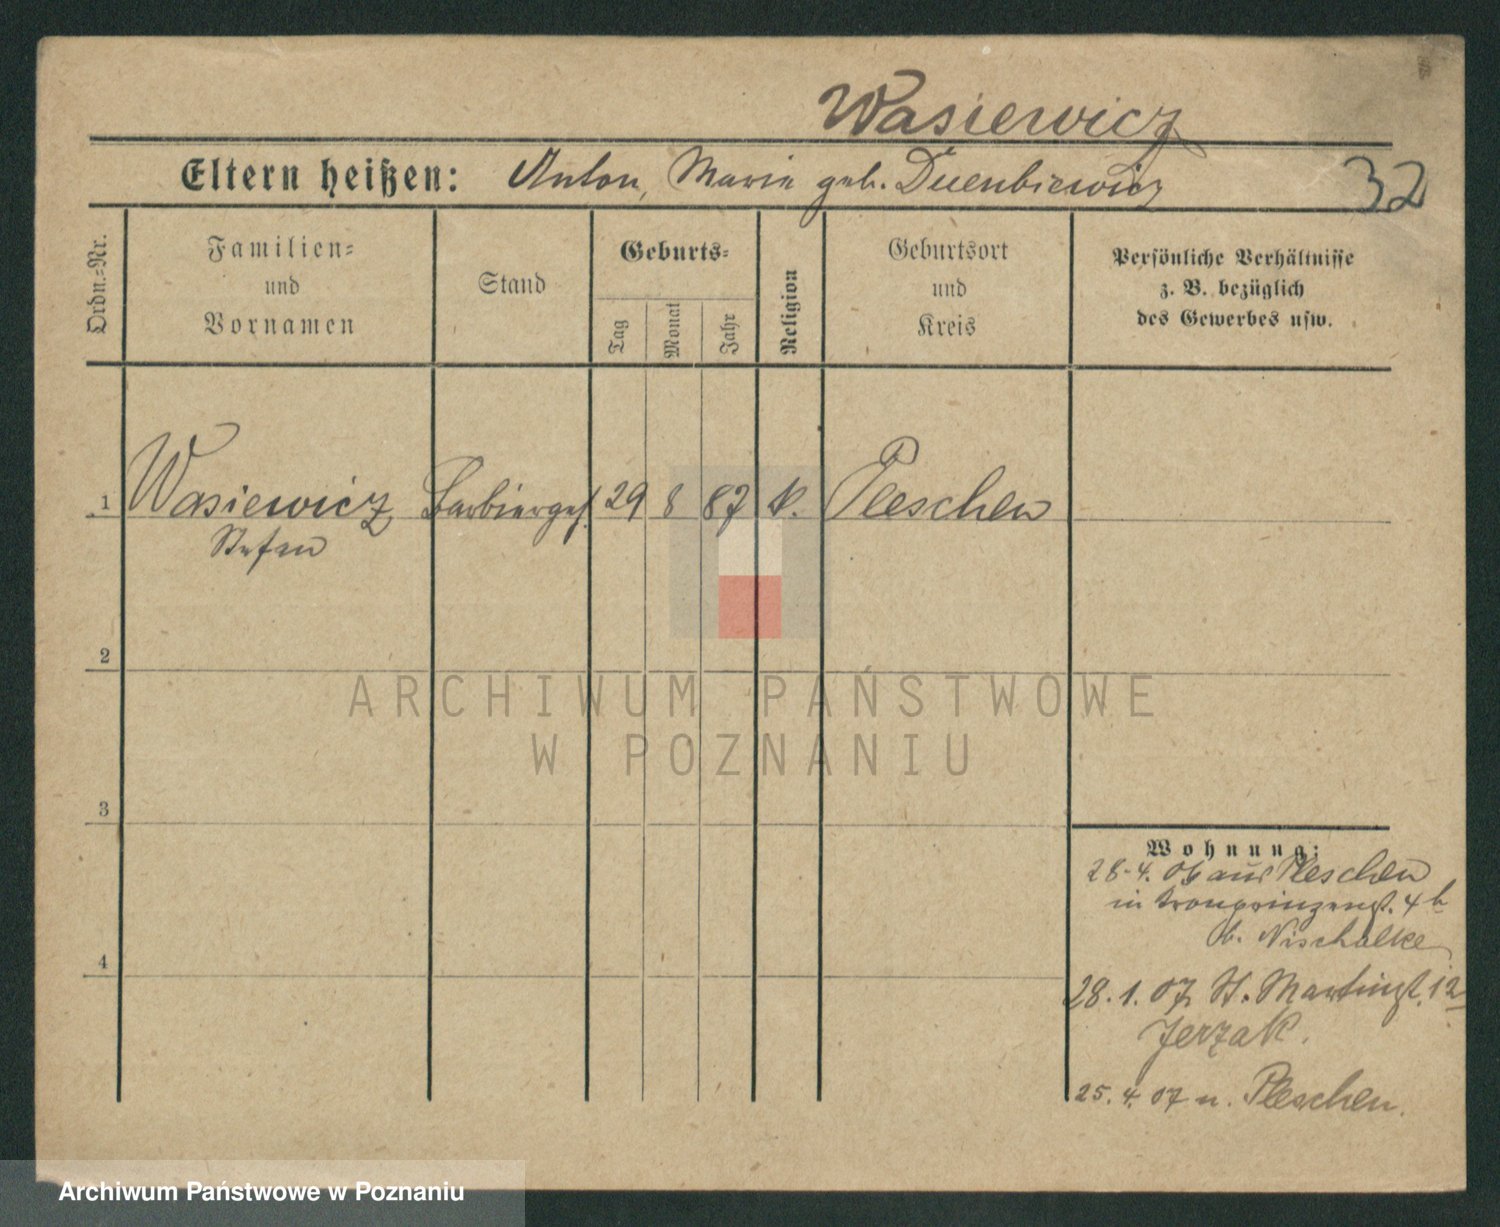 Wasiewicz
Eltern heißen: Anton, Maria geb.
32
Ordn.-Nr.
Familien-
und
Vornamen
Stand
Geburts-
Tag
Monat
Jahr
Religion
Geburtsort
und
Kreis
Persönliche Verhältnisse
z. B. bezüglich
des Gewerbes usw.
1 Wasiewicz Barbiergeh. 29 8 87 k. Pleschen
Stefan
2
3
4
Wohnung:
28.4. 06 aus Pleschen
in Kronprinzenst. 4b
b. Nischalke
28.1.07 St. Martinst. 12
Jerzak.
25.4.07 n. Pleschen.
ARCHIWUM PAŃSTWOWE
W POZNANIU
Archiwum Państwowe w Poznaniu